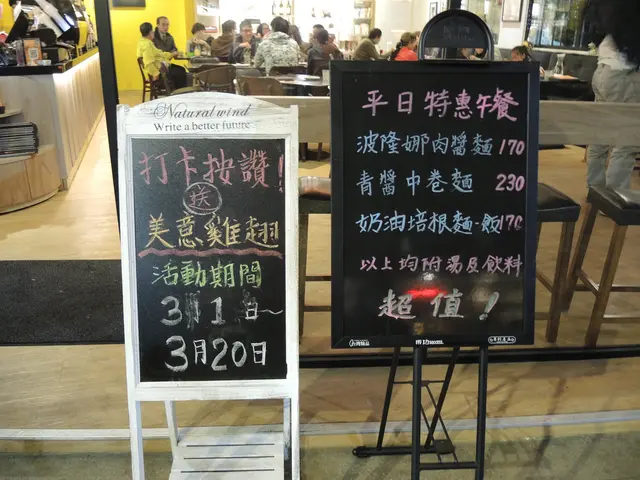 Natural wind
Write a better future
打卡按讚!
送
美意雞翅
活動期間
3月1日~
3月20日
平日特惠午餐
波隆娜肉醬麵170
青醬中卷麵 230
奶油培根麵.飯170
以上均附湯及飲料
超值!